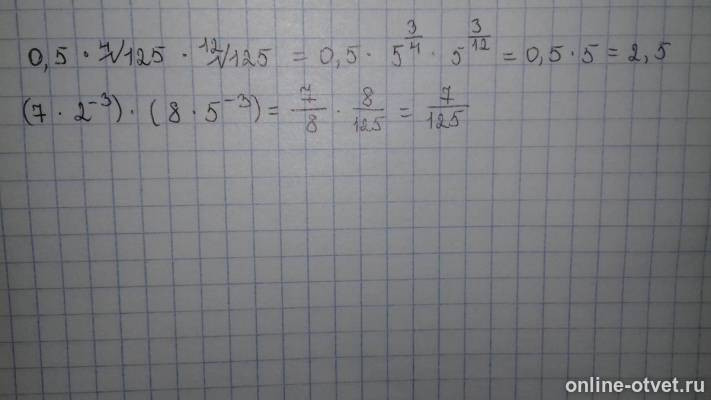 0,5 · ⁴√125 · ¹²√125 = 0,5 · 5^(3/4) · 5^(3/12) = 0,5 · 5 = 2,5
(7 · 2⁻³) · (8 · 5⁻³) = 7/8 · 8/125 = 7/125
online-otvet.ru